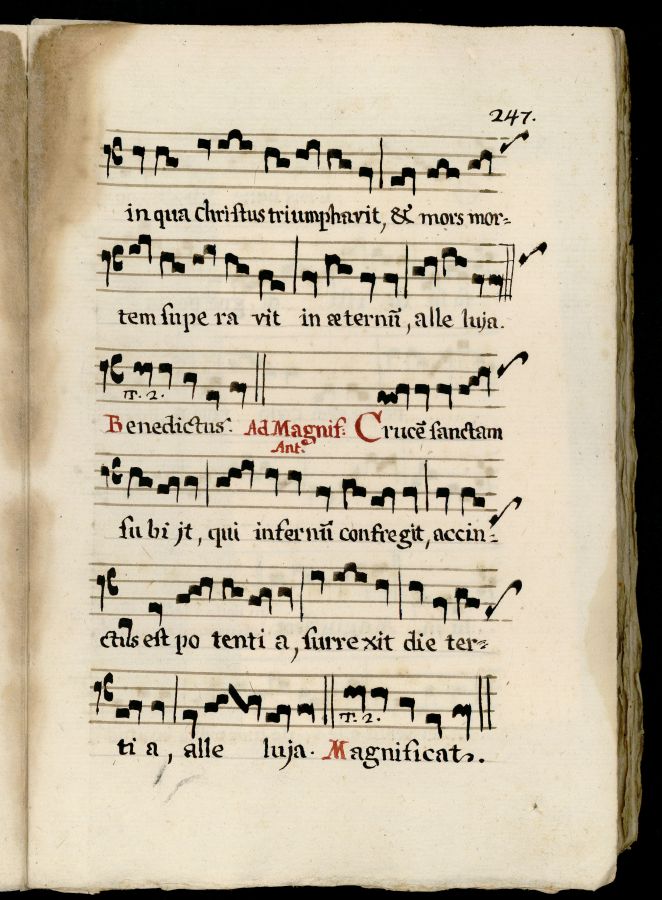 247.
in qua christus triumphavit, & mors mor=
tem supe ra vit in æternū, alle luja.
T. 2.
Benedictus. Ad Magnif: Crucē sanctam
Ant.
su bi jt, qui infernū confregit, accin=
ctus est po tenti a, surrexit die ter=
T. 2.
ti a, alle luja. Magnificat.